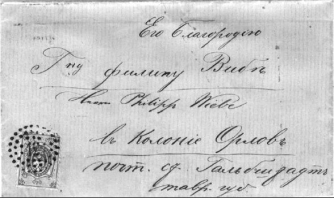 Его Благородію
Гпд Филипу Вибе
Herrn Philipp Wiebe
въ Колоніе Орловъ
почт. ст. Гальбштадтъ
Тавр. губ.